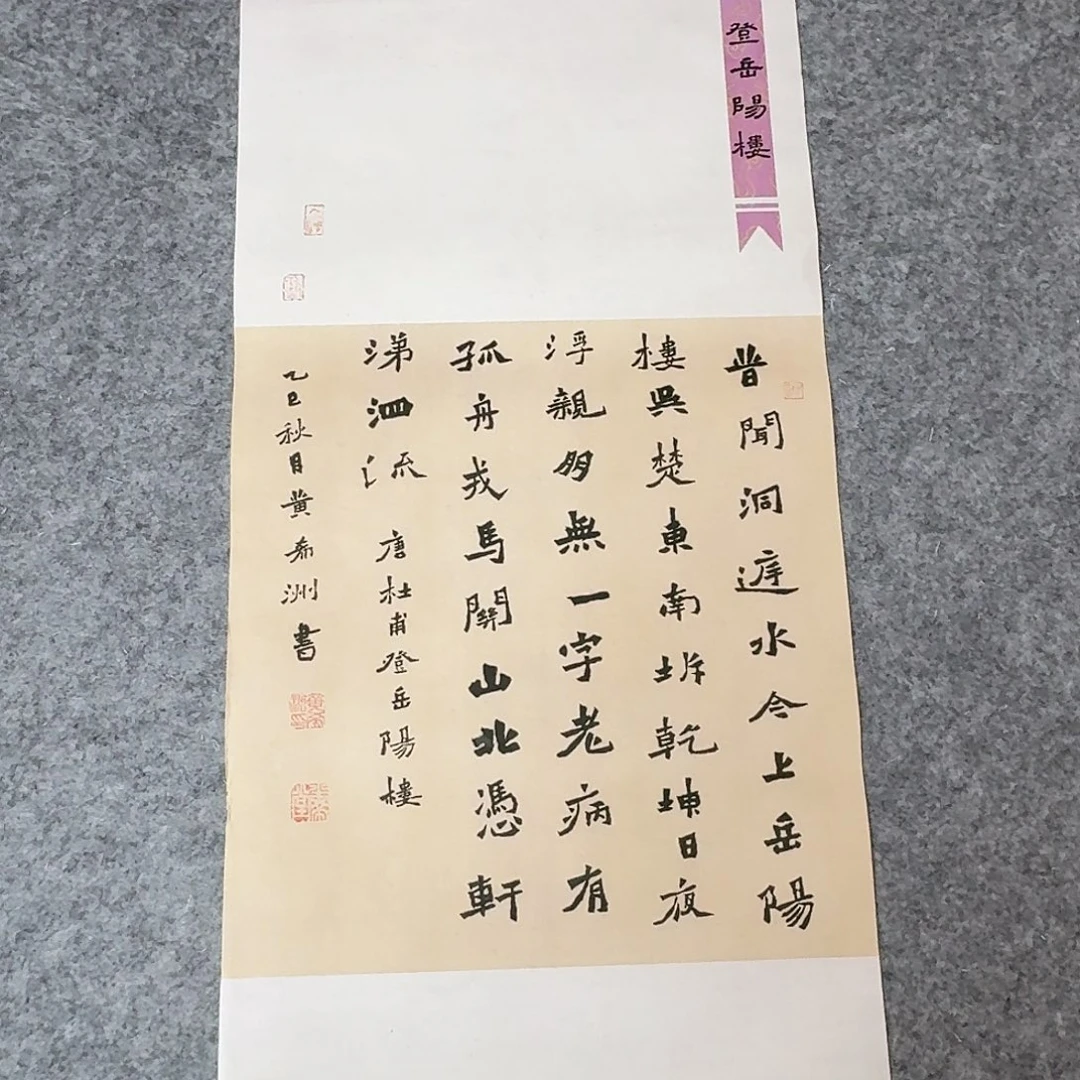 登岳陽樓
昔聞洞庭水今上岳陽
樓吳楚東南坼乾坤日夜
浮親朋無一字老病有
孤舟戎馬關山北憑軒
涕泗流 唐杜甫登岳陽樓
乙巳秋月黄希洲書